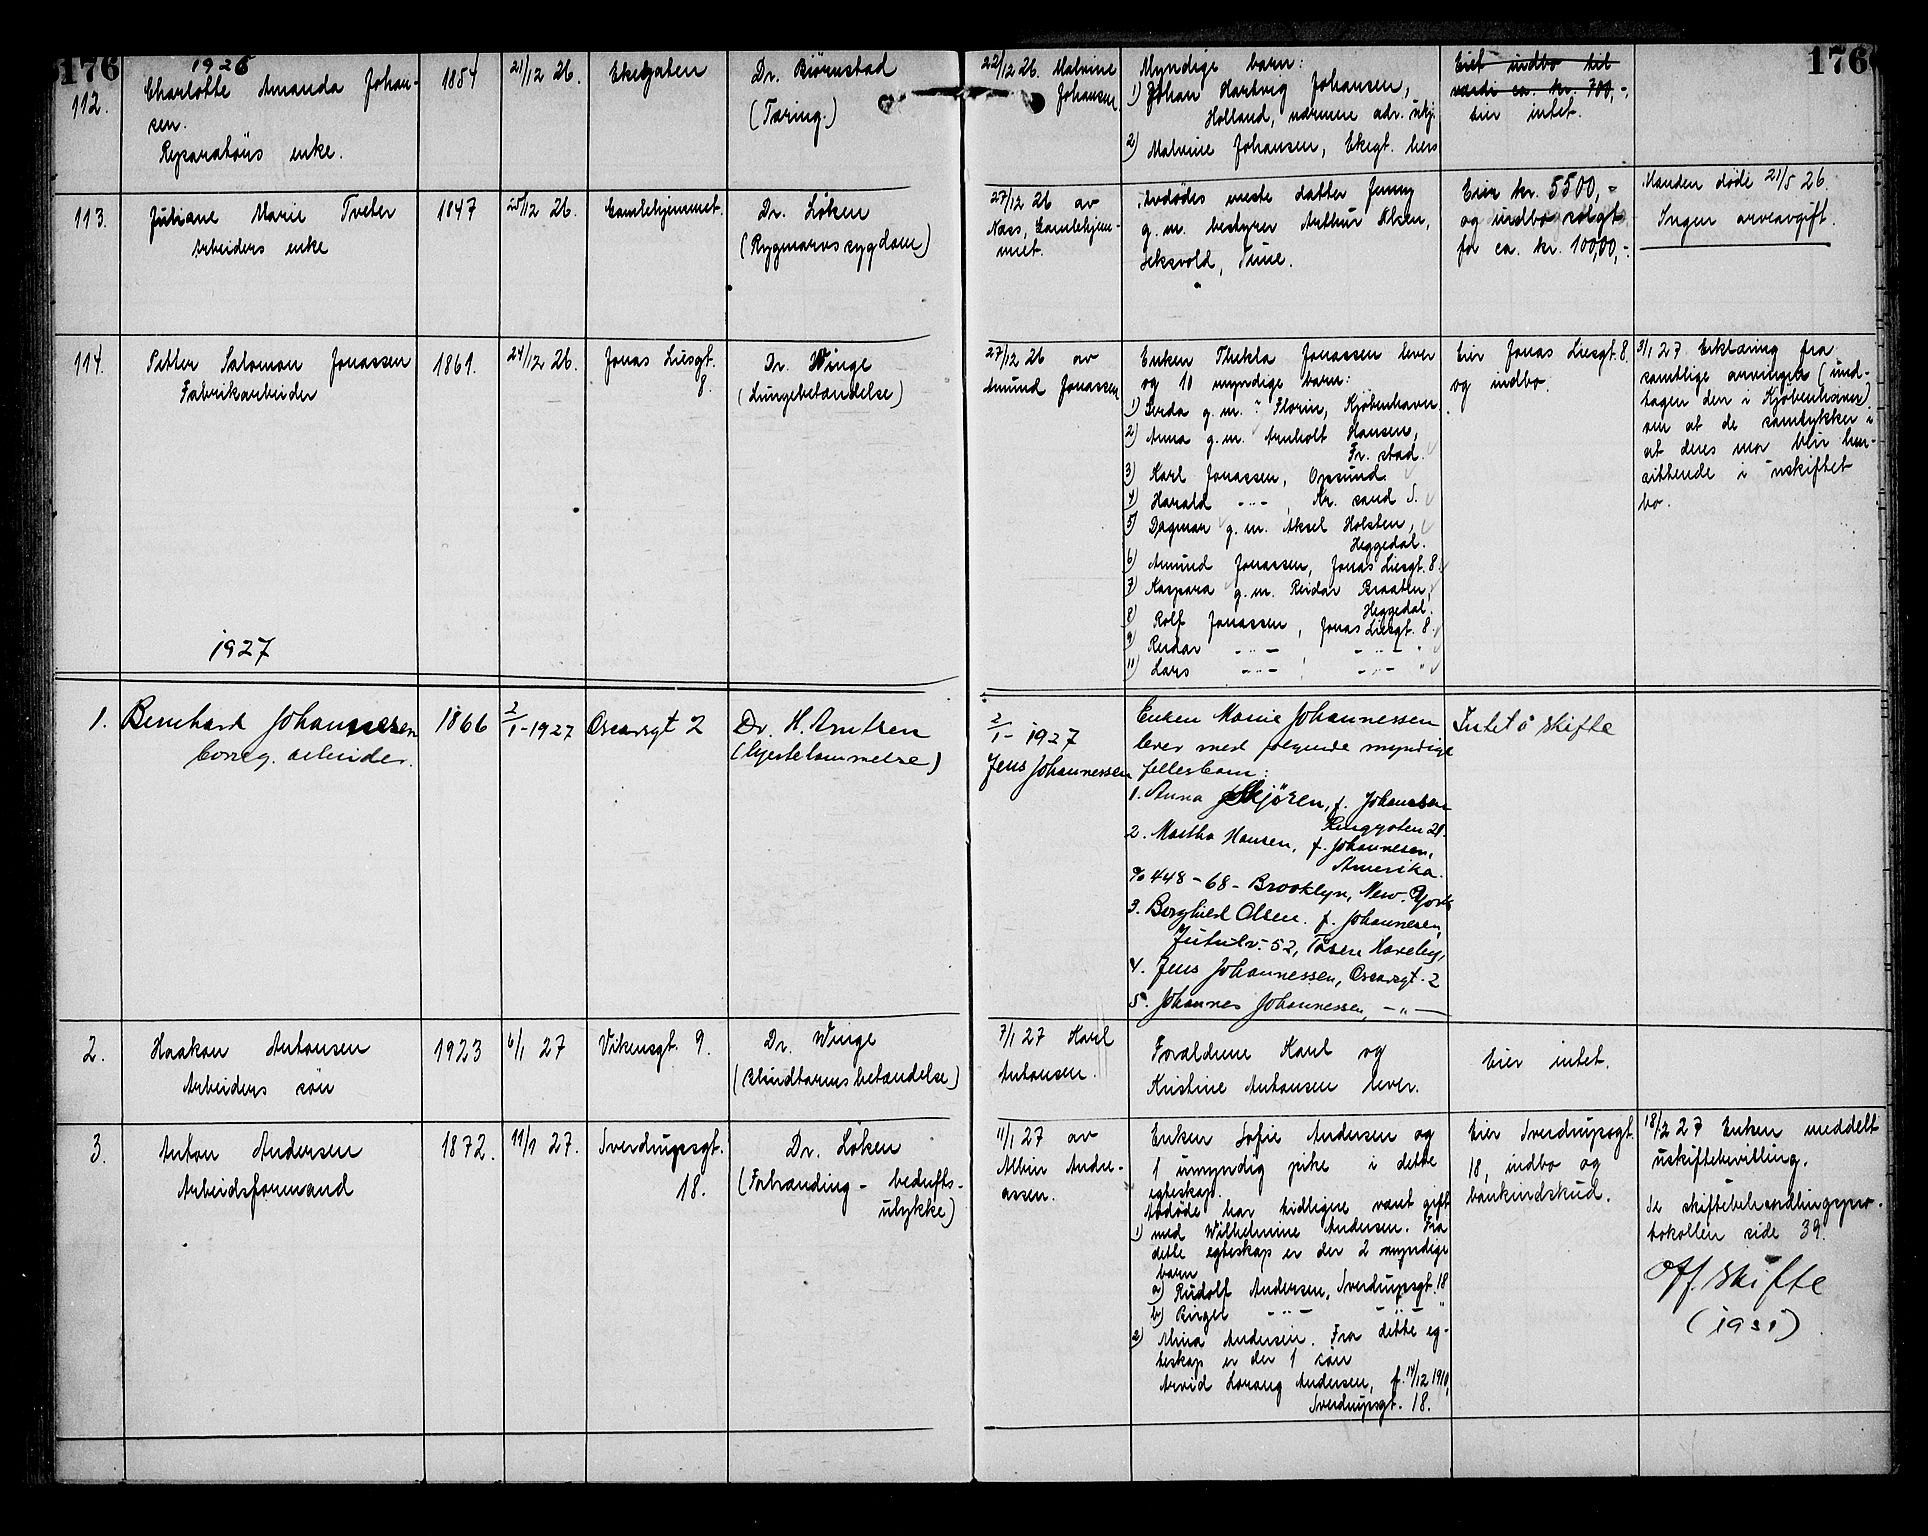 176
176
1926
112.
Charlotte Amanda Johan-
sen.
Reparatörs enke.
1854
21/12 26.
Ekegaten
Dr. Biörnstad
(Tæring.)
22/12 26. Malvine
Johansen
Myndige barn:
1) Johan Hartvig Johansen,
Holland, nærmere adr. ukj.
2) Malvine Johansen, Ekegt. hers
Eiet indbo til
værdi ca. kr. 700,-,
Eier intet.
113.
Juliane Marie Tveter
Arbeiders enke
1847
25/12 26.
Gamlehjemmet.
Dr. Löken
(Rygmarvssygdom)
27/12 26 av
Næss, Gamlehjem-
met.
Avdödes eneste datter Jenny
g. m. bestyrer Arthur Olsen,
Tune.
Eier kr. 5500,-
og indbo solgt
for ca. kr. 1000,-.
Manden döde 21/5 26.
Ingen arveavgift.
114.
Petter Salomon Jonassen
Fabrikarbeider
1861.
24/12 26.
Jonas Liesgt.
8.
Dr. Winge
(Lungebetændelse)
27/12 26 av
Amund Jonassen
Enken Thekla Jonassen lever
og 10 myndige barn:
1) Gerda g. m. ? Florin, Kjöbenhavn
2) Anna g. m. Arnholt Hansen,
Fr. stad.
3) Karl Jonassen,
4) Harald -"- , Kr. sand S.
5) Dagmar g. m. Aksel Holsten,
Heggedal.
6) Amund Jonassen, Jonas Liesgt. 8.
7) Kaspara g. m. Reidar Braaten,
Heggedal.
8) Rolf Jonassen, Jonas Liesgt. 8
9) Reidar -"- -"- "
10) Lars -"- , -"- "
Eier Jonas Liesgt. 8.
og indbo.
3/1 27 Erklæring fra
samtlige arvinger (und-
tagen den i Kjöbenhavn)
om at de samtykker i
at deres mor blir hen-
sittende i uskiftet
bo.
1927
1.
Bernhard Johannesen
arbeider.
1866
2/1-1927
Oscarsgt 2
Dr. H. Arntsen
(hjertelammelse)
2/1-1927
Jens Johannessen
Enken Marie Johannessen
lever med fölgende myndige
fellesbarn:
1. Anna Skjören, f. Johansen
Ringgaten 28.
2. Martha Hansen, f. Johannesen,
Amerika.
% 448-68- Brooklyn, New-York
3. Borghild Olsen. f. Johannesen,
52, Tåsen Haveby,
4. Jens Johannessen, Oscarsgt. 2
5. Johannes Johannessen, -"-
Intet å skifte
2.
Haakon Antonsen
Arbeiders sön
1923
6/1 27
Vikensgt. 9.
Dr. Winge
(Blindtarmsbetændelse)
7/1 27 Karl
Antonsen.
Forældrene Karl og
Kristine Antonsen lever.
Eier intet.
3.
Anton Andersen
Arbeidsformand
1872.
11/1 27.
Sverdrupsgt.
18.
Dr. Löken
(Forbrænding - bedrifts-
ulykke)
11/1 27 av
Albin Andre-
assen.
Enken Sofie Andersen og
1 umyndig pike i dette
egteskap.
Avdöde har tidligere været gift
1) med Wilhelmine Andersen. Fra
dette egteskap er der 2 myndige
barn
a) Rudolf Andersen, Sverdrupsgt. 18
b) Birger -"- -"- "
2) Alvina Andersen. Fra dette eg-
teskap er der 1 sön
Arvid Lorang Andersen, f. 14/12 1910,
Sverdrupsgt. 18.
Eier Sverdrupsgt.
18, indbo og
bankindskud.
18/2 27 Enken meddelt
uskiftebevilling.
Se skiftebehandlingspro-
tokollen side 39.
Off. skifte
(1931)